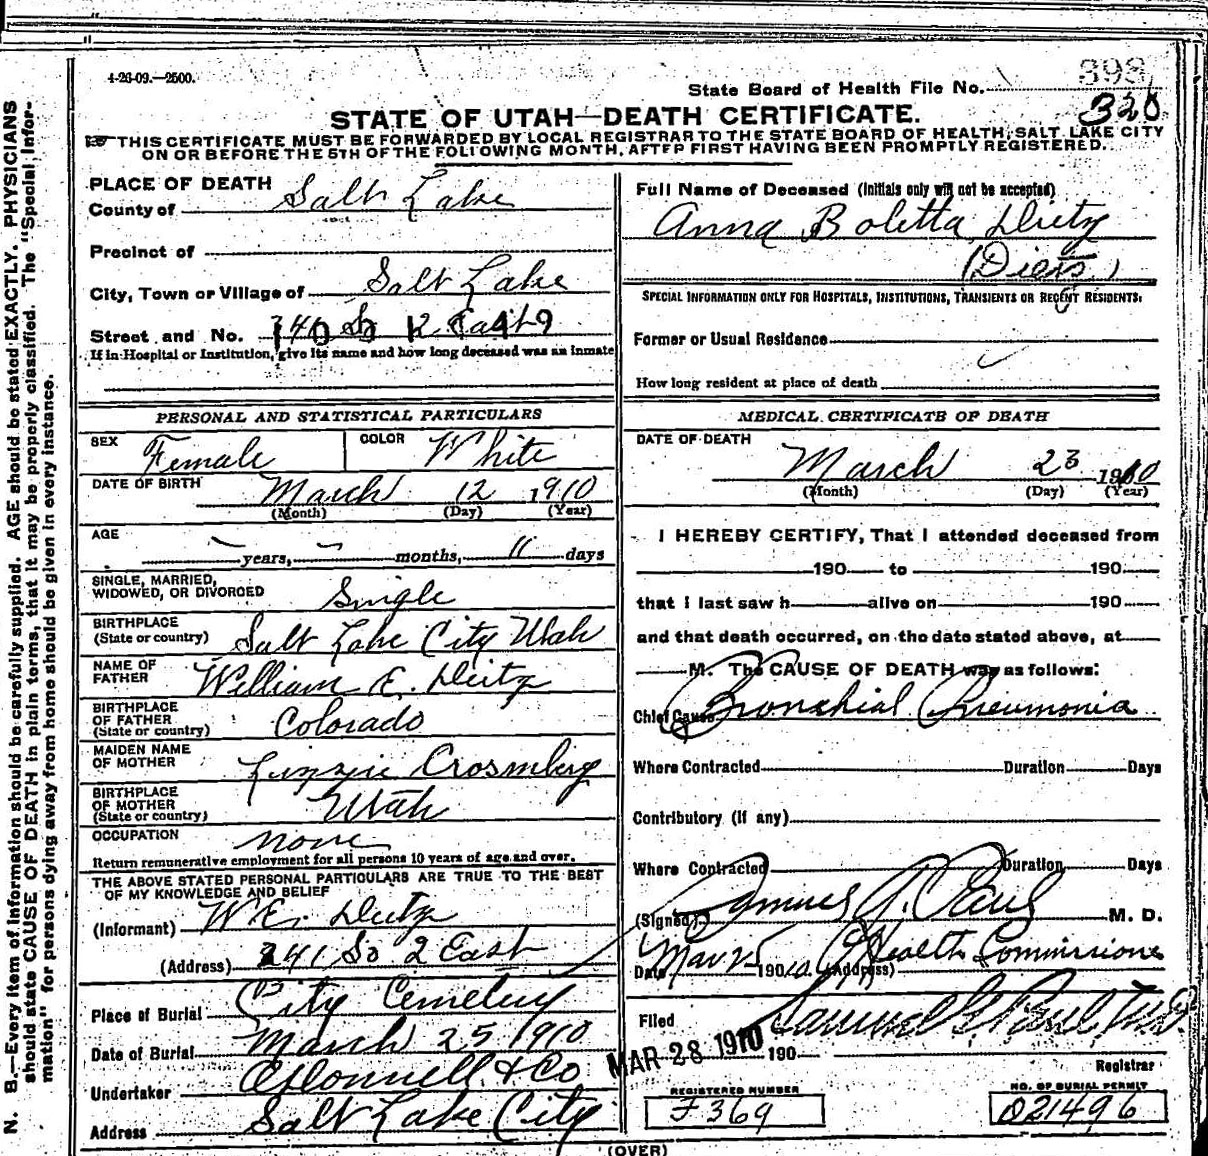 4-26-09.—2500.
398
State Board of Health File No.
320
STATE OF UTAH—DEATH CERTIFICATE.
THIS CERTIFICATE MUST BE FORWARDED BY LOCAL REGISTRAR TO THE STATE BOARD OF HEALTH, SALT LAKE CITY
ON OR BEFORE THE 5TH OF THE FOLLOWING MONTH, AFTER FIRST HAVING BEEN PROMPTLY REGISTERED.
PLACE OF DEATH
County of Salt Lake
Precinct of
City, Town or Village of Salt Lake
Street and No. 241 So 2 East
If in Hospital or Institution, give its name and how long deceased was an inmate
PERSONAL AND STATISTICAL PARTICULARS
SEX Female COLOR White
DATE OF BIRTH March 12 1910
(Month) (Day) (Year)
AGE
— years, — months, 11 days
SINGLE, MARRIED,
WIDOWED, OR DIVORCED Single
BIRTHPLACE
(State or country) Salt Lake City Utah
NAME OF
FATHER William E. Dietz
BIRTHPLACE
OF FATHER
(State or country) Colorado
MAIDEN NAME
OF MOTHER Lizzie Crosmberg
BIRTHPLACE
OF MOTHER
(State or country) Utah
OCCUPATION none
Return remunerative employment for all persons 10 years of age and over.
THE ABOVE STATED PERSONAL PARTICULARS ARE TRUE TO THE BEST
OF MY KNOWLEDGE AND BELIEF
(Informant) W.E. Dietz
(Address) 241 So 2 East
Place of Burial City Cemetery
Date of Burial March 25 1910
Undertaker O'Donnell & Co
Address Salt Lake City
Full Name of Deceased (Initials only will not be accepted)
Anna Boletta Dietz
(Dietz)
SPECIAL INFORMATION ONLY FOR HOSPITALS, INSTITUTIONS, TRANSIENTS OR RECENT RESIDENTS.
Former or Usual Residence
How long resident at place of death
MEDICAL CERTIFICATE OF DEATH
DATE OF DEATH
March 23 1910
(Month) (Day) (Year)
I HEREBY CERTIFY, That I attended deceased from
190 to 190
that I last saw h alive on 190
and that death occurred, on the date stated above, at
M. The CAUSE OF DEATH was as follows:
Chief Cause Bronchial Pneumonia
Where Contracted Duration Days
Contributory (if any)
Where Contracted Duration Days
(Signed) Samuel G. Paul M. D.
Date Mar 25 1910 (Address) Health Commissioner
Filed Samuel G. Paul M.D.
MAR 28 1910 190
Registrar
REGISTERED NUMBER
F 369
NO. OF BURIAL PERMIT
D21496
(OVER)
N. B.—Every item of information should be carefully supplied. AGE should be stated EXACTLY. PHYSICIANS
should state CAUSE OF DEATH in plain terms, that it may be properly classified. The "Special Infor-
mation" for persons dying away from home should be given in every instance.